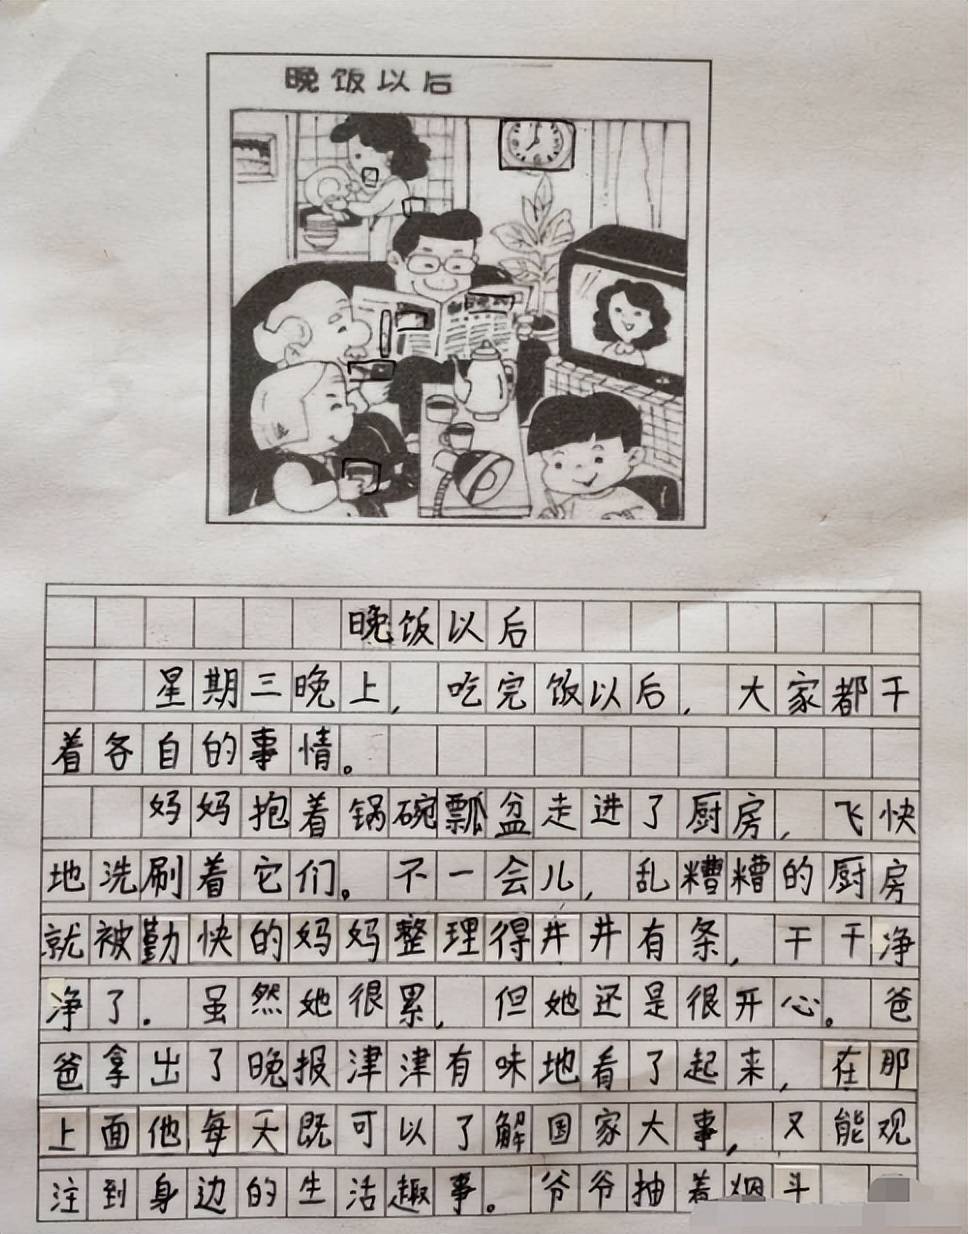 晚饭以后
晚饭以后
星期三晚上,吃完饭以后,大家都干
着各自的事情。
妈妈抱着锅碗瓢盆走进了厨房,飞快
地洗刷着它们。不一会儿,乱糟糟的厨房
就被勤快的妈妈整理得井井有条,干干净
净了.虽然她很累,但她还是很开心。爸
爸拿出了晚报津津有味地看了起来,在那
上面他每天既可以了解国家大事,又能观
注到身边的生活趣事。爷爷抽着烟斗